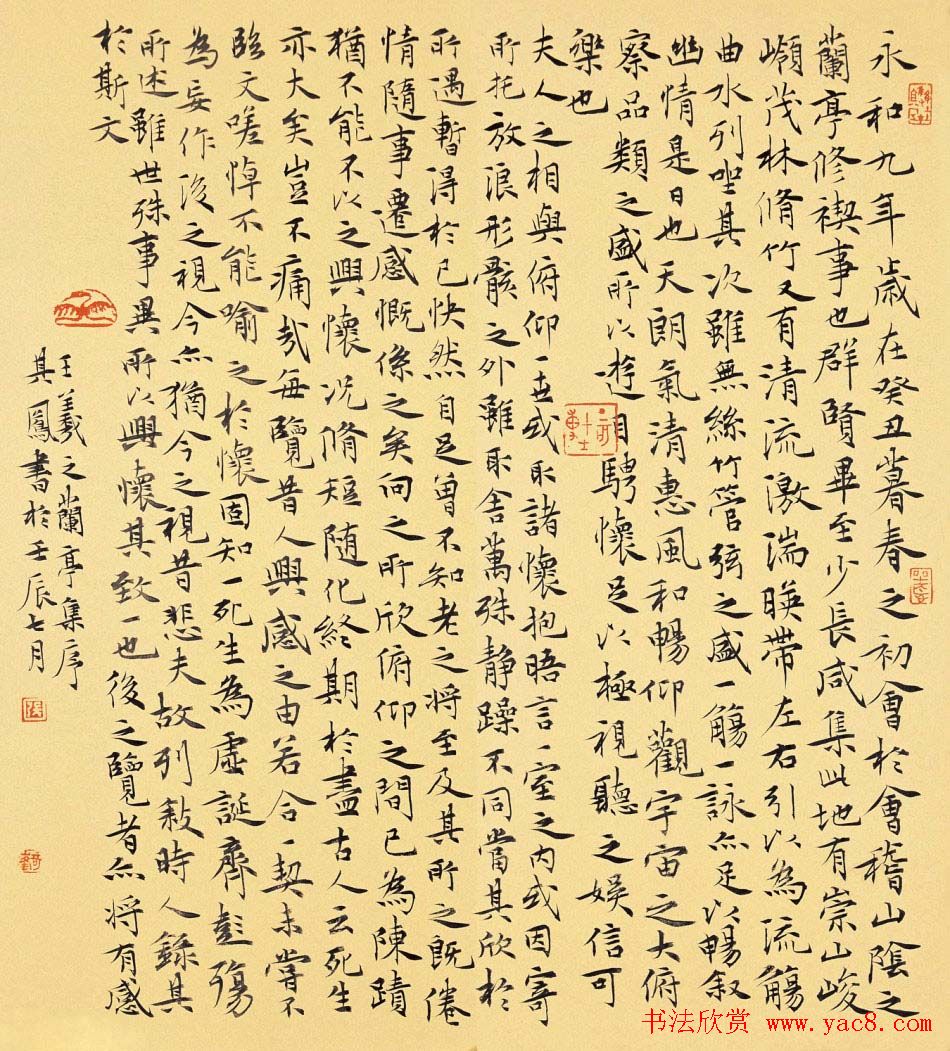 永和九年歲在癸丑暮春之初會於會稽山陰之
蘭亭修禊事也群賢畢至少長咸集此地有崇山峻
嶺茂林脩竹又有清流激湍暎帶左右引以為流觴
曲水列坐其次雖無絲竹管弦之盛一觴一詠亦足以暢敘
幽情是日也天朗氣清惠風和暢仰觀宇宙之大俯
察品類之盛所以遊目騁懷足以極視聽之娛信可
樂也
夫人之相與俯仰一世或取諸懷抱晤言一室之內或因寄
所托放浪形骸之外雖取舍萬殊静躁不同當其欣於
所遇暫得於己快然自足曾不知老之將至及其所之既倦
情隨事遷感慨係之矣向之所欣俯仰之間已為陳蹟
猶不能不以之興懷況脩短随化終期於盡古人云死生
亦大矣豈不痛哉每覽昔人興感之由若合一契未嘗不
臨文嗟悼不能喻之於懷固知一死生為虛誕齊彭殤
為妄作後之視今亦猶今之視昔悲夫故列敘時人錄其
所述雖世殊事異所以興懷其致一也後之覽者亦将有感
於斯文
王羲之蘭亭集序
其鳳書於壬辰七月
书法欣赏 www.yac8.com